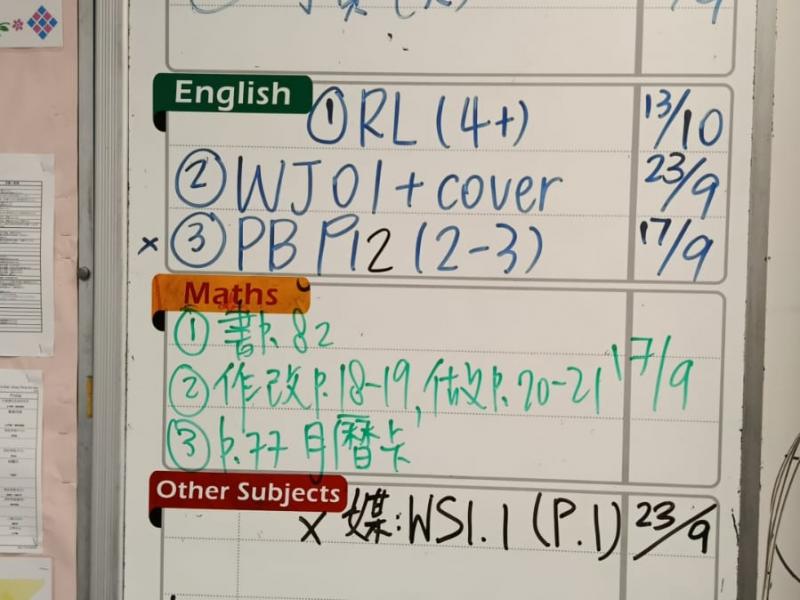 English
① RL (4+) 13/10
② WJ01 + cover 23/9
× ③ PB P12 (2-3) 17/9
Maths
① 書p.82
② 作改p.18-19, 做p.20-21 17/9
③ p.77 月曆卡
Other Subjects
× 媒: WS1.1 (P.1) 23/9